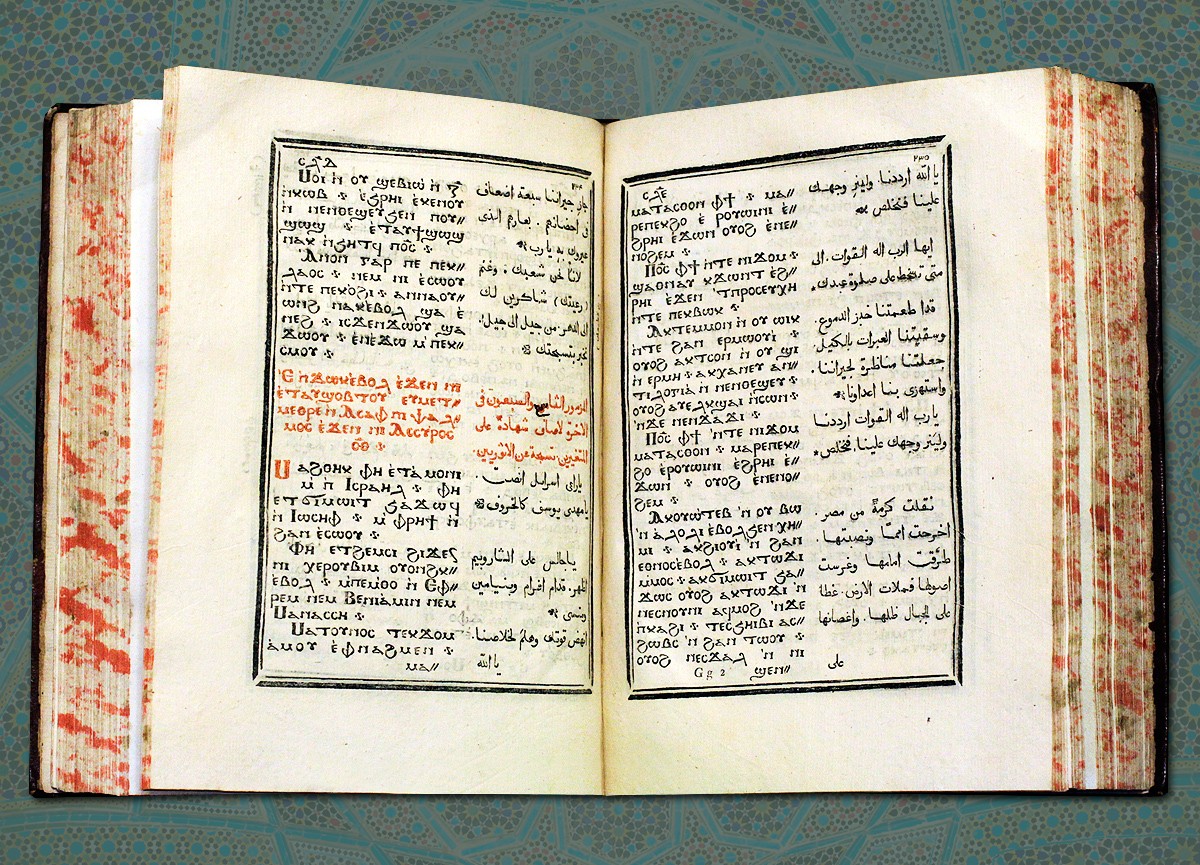 ⲥⲗ̅ⲇ
Ⲙⲟⲓ ⲛ̀ ⲟⲩ ϣⲉⲃⲓⲱ ⲛ̀ ⲍ̅
ⲛ̀ⲕⲱⲃ ⁘ ⲉϧⲣⲏⲓ ⲉⲕⲉⲛⲟⲩ
ⲛ̀ ⲛⲉⲛⲑⲉϣⲉⲩϧⲉⲛ ⲡⲟⲩ〃
ϣⲱϣ ⁘ ⲉⲧⲁⲩϯϣⲱϣ
ⲛⲁⲕ ⲛ̀ϧⲏⲧϥ ⲡⲟ̅ⲥ̅ ⁘
Ⲁⲛⲟⲛ ⲅⲁⲣ ⲡⲉ ⲡⲉⲕ〃
ⲗⲁⲟⲥ ⁘ ⲛⲉⲙ ⲛⲓ ⲉⲥⲱⲟⲩ
ⲛ̀ⲧⲉ ⲡⲉⲕⲟϩⲓ ⁘ ⲁⲛⲛⲁⲟⲩ〃
ⲱⲛϩ ⲛⲁⲕⲉⲃⲟⲗ ϣⲁ ⲉ̀
ⲛⲉϩ ⁘ ⲓⲥϫⲉⲛϫⲱⲟⲩ ϣⲁ
ϫⲱⲟⲩ ⁘ ⲉⲛⲉϫⲱ ⲙ̀ ⲡⲉⲕ〃
ⲥⲙⲟⲩ ⁘
Ⲉ ⲡ̀ϫⲱⲕⲉⲃⲟⲗ ⲉϫⲉⲛ ⲛⲏ
ⲉⲧⲁⲩϣⲟⲃⲧⲟⲩ ⲉⲩⲙⲉⲧ〃
ⲙⲉⲑⲣⲉ ⲛ̀ Ⲁⲥⲁⲫ ⲡⲓ ⲯⲁⲗ〃
ⲙⲟⲥ ⲉϫⲉⲛ ⲛⲓ Ⲁⲥⲥⲩⲣⲟⲥ
ⲟ̅ⲑ̅ ⁘
Ⲙⲁϩⲑⲏⲕ ⲫⲏ ⲉⲧⲁⲙⲟⲛⲓ
ⲙ̀ ⲡ̀ Ⲓⲥⲣⲁⲏⲗ ⁘ ⲫⲏ
ⲉⲧϭⲓⲙⲱⲓⲧ ϧⲁϫⲱϥ
ⲛ̀ Ⲓⲱⲥⲏⲫ ⁘ ⲙ̀ ⲫⲣⲏϯ ⲛ̀
ϩⲁⲛ ⲉⲥⲱⲟⲩ ⁘
Ⲫⲏ ⲉⲧϩⲉⲙⲥⲓ ϩⲓϫⲉⲛ
ⲛⲓ ⲭⲉⲣⲟⲩⲃⲓⲙ ⲟⲩⲟⲛϩⲕ〃
ⲉⲃⲟⲗ ⁘ ⲙ̀ⲡⲉⲙⲑⲟ ⲛ̀ Ⲉⲫ〃
ⲣⲉⲙ ⲛⲉⲙ Ⲃⲉⲛⲓⲁⲙⲓⲛ ⲛⲉⲙ
Ⲙⲁⲛⲁⲥⲥⲏ ⁘
Ⲙⲁⲧⲟⲩⲛⲟⲥ ⲧⲉⲕϫⲟⲙ
ⲁⲙⲟⲩ ⲉⲫⲛⲁϩⲙⲉⲛ ⁘
ⲙⲁ〃
٢٣٤
جاز جيراننا سبعة اضعاف
فى احضانهم . بعارهم الذى
عيروك به يا رب
لاننا نحن شعبك . وغنم
(رعيتك) شاكرين لك
الى الدهر . من جيل الى جيل .
نخبر بتسبحتك
المزمور الثامن والسبعون فى
شهادة على
المتغيرين تسبحة عن الاثوريين .
يا راعى اسراييل انصت .
يا مهدى يوسف كالخروف
يا جالس على الشاروبيم
اظهر . قدام افرام وبنيامين
ومنسى
انهض قوتك وهلم لخلاصنا
يا الله
ⲥⲗ̅ⲉ
ⲙⲁⲧⲁⲥⲑⲟⲛ ⲫϯ ⁘ ⲙⲁ〃
ⲣⲉⲡⲉⲕϩⲟ ⲉ̀ ⲣⲟⲩⲱⲓⲛⲓ ⲉ̀〃
ϩⲣⲏⲓ ⲉϫⲱⲛ ⲟⲩⲟϩ ⲉⲛⲉ〃
ⲛⲟϩⲉⲙ ⁘
Ⲡⲟ̅ⲥ̅ ⲫϯ ⲛ̀ⲧⲉ ⲛⲓϫⲟⲙ ⁘
ϣⲁⲑⲛⲁⲩ ⲕϫⲱⲛⲧ ⲉϩ〃
ⲣⲏⲓ ⲉϫⲉⲛ ϯⲡⲣⲟⲥⲉⲩⲭⲏ
ⲛ̀ⲧⲉ ⲡⲉⲕⲃⲱⲕ ⁘
Ⲁⲕⲧⲉⲙⲙⲟⲛ ⲛ̀ ⲟⲩ ⲱⲓⲕ
ⲛ̀ⲧⲉ ϩⲁⲛ ⲉⲣⲙⲱⲟⲩⲓ̀ ⁘
ⲟⲩⲟϩ ⲁⲕⲧⲥⲟⲛ ⲛ̀ ⲟⲩ ϣⲓ
ⲛ̀ ⲉⲣⲙⲏ ⁘ ⲁⲕⲭⲁⲛⲉⲩ ⲁⲛ〃
ⲧⲓⲗⲟⲅⲓⲁ ⲛ̀ ⲛⲉⲛⲑⲉϣⲉⲩ ⁘
ⲟⲩⲟϩ ⲁⲩⲉⲗⲕϣⲁⲓ ⲛ̀ⲥⲱⲛ ⁘
ⲛ̀ϫⲉ ⲛⲉⲛϫⲁϫⲓ ⁘
Ⲡⲟ̅ⲥ̅ ⲫϯ ⲛ̀ⲧⲉ ⲛⲓϫⲟⲙ
ⲙⲁⲧⲁⲥⲑⲟⲛ ⁘ ⲙⲁⲣⲉⲡⲉⲕ〃
ϩⲟ ⲉ̀ⲣⲟⲩⲱⲓⲛⲓ ⲉϩⲣⲏⲓ ⲉ̀〃
ϫⲱⲛ ⁘ ⲟⲩⲟϩ ⲉⲛⲉⲛⲟ〃
ϩⲉⲙ ⁘
Ⲁⲕⲟⲩⲱⲧⲉⲃ ⲛ̀ ⲟⲩ ⲃⲱ
ⲛ̀ ⲁⲗⲟⲗⲓ ⲉⲃⲟⲗϧⲉⲛ ⲭⲏ〃
ⲙⲓ ⁘ ⲁⲕϩⲓⲟⲩⲓ̀ ⲛ̀ ϩⲁⲛ
ⲉⲑⲛⲟⲥⲉⲃⲟⲗ ⁘ ⲁⲕⲧⲱϫⲓ
ⲙ̀ⲙⲟⲥ ⁘ ⲁⲕϭⲓⲙⲱⲓⲧ ϧⲁ〃
ϫⲱⲥ ⲟⲩⲟϩ ⲁⲕⲧⲱϫⲓ ⲛ̀
ⲛⲉⲥⲛⲟⲩⲛⲓ ⲁⲥⲙⲟϩ ⲛ̀ϫⲉ
ⲡⲕⲁϩⲓ ⁘ ⲧⲉⲥϧⲏⲓⲃⲓ ⲁⲥ〃
ϩⲱⲃⲥ ⲛ̀ ϩⲁⲛ ⲧⲱⲟⲩ ⁘
ⲟⲩⲟϩ ⲛⲉⲥϫⲁⲗ ⲛ̀ ⲛⲓ
Gg 2 ϣⲉⲛ〃
٢٣٥
يا الله ارددنا . ولينر وجهك
علينا فنخلص
ايها الرب اله القوات . الى
متى تسخط على صلوة عبدك .
قد اطعمتنا خبز الدموع .
وسقيتنا العبرات بالكيل .
جعلتنا مناظرة لجيراننا .
واستهزى بنا اعداونا
يا رب اله القوات ارددنا
ولينر وجهك علينا . فنخلص
نقلت كرمةً من مصر .
اخرجت امما . ونصبتها .
طرقت امامها . وغرست
اصولها فملات الارض . غطا
على الجبال ظلها . واغصانها
على